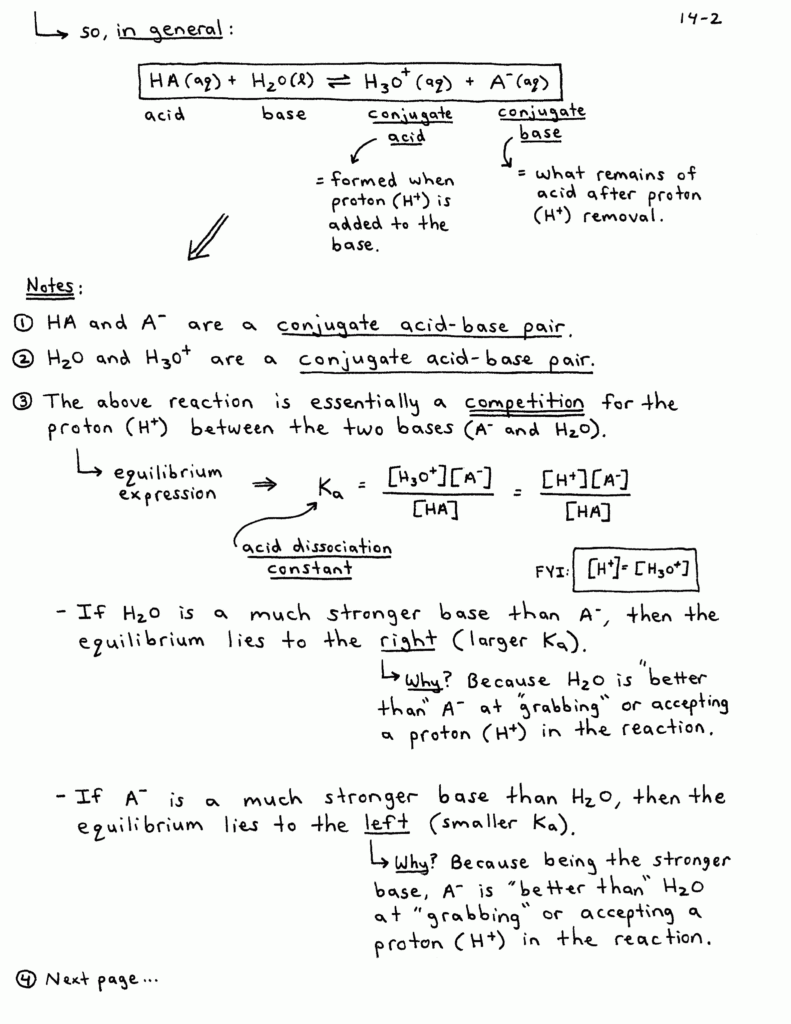 14-2
↳ so, in general:
HA(aq) + H₂O(l) ⇌ H₃O⁺(aq) + A⁻(aq)
acid base conjugate acid conjugate base
= formed when
proton (H⁺) is
added to the
base.
= what remains of
acid after proton
(H⁺) removal.
Notes:
① HA and A⁻ are a conjugate acid-base pair.
② H₂O and H₃O⁺ are a conjugate acid-base pair.
③ The above reaction is essentially a competition for the
proton (H⁺) between the two bases (A⁻ and H₂O).
↳ equilibrium
expression ⇒ Ka = [H₃O⁺][A⁻]/[HA] = [H⁺][A⁻]/[HA]
acid dissociation
constant
FYI: [H⁺]=[H₃O⁺]
- If H₂O is a much stronger base than A⁻, then the
equilibrium lies to the right (larger Ka).
↳ Why? Because H₂O is "better
than" A⁻ at "grabbing" or accepting
a proton (H⁺) in the reaction.
- If A⁻ is a much stronger base than H₂O, then the
equilibrium lies to the left (smaller Ka).
↳ Why? Because being the stronger
base, A⁻ is "better than" H₂O
at "grabbing" or accepting a
proton (H⁺) in the reaction.
④ Next page...